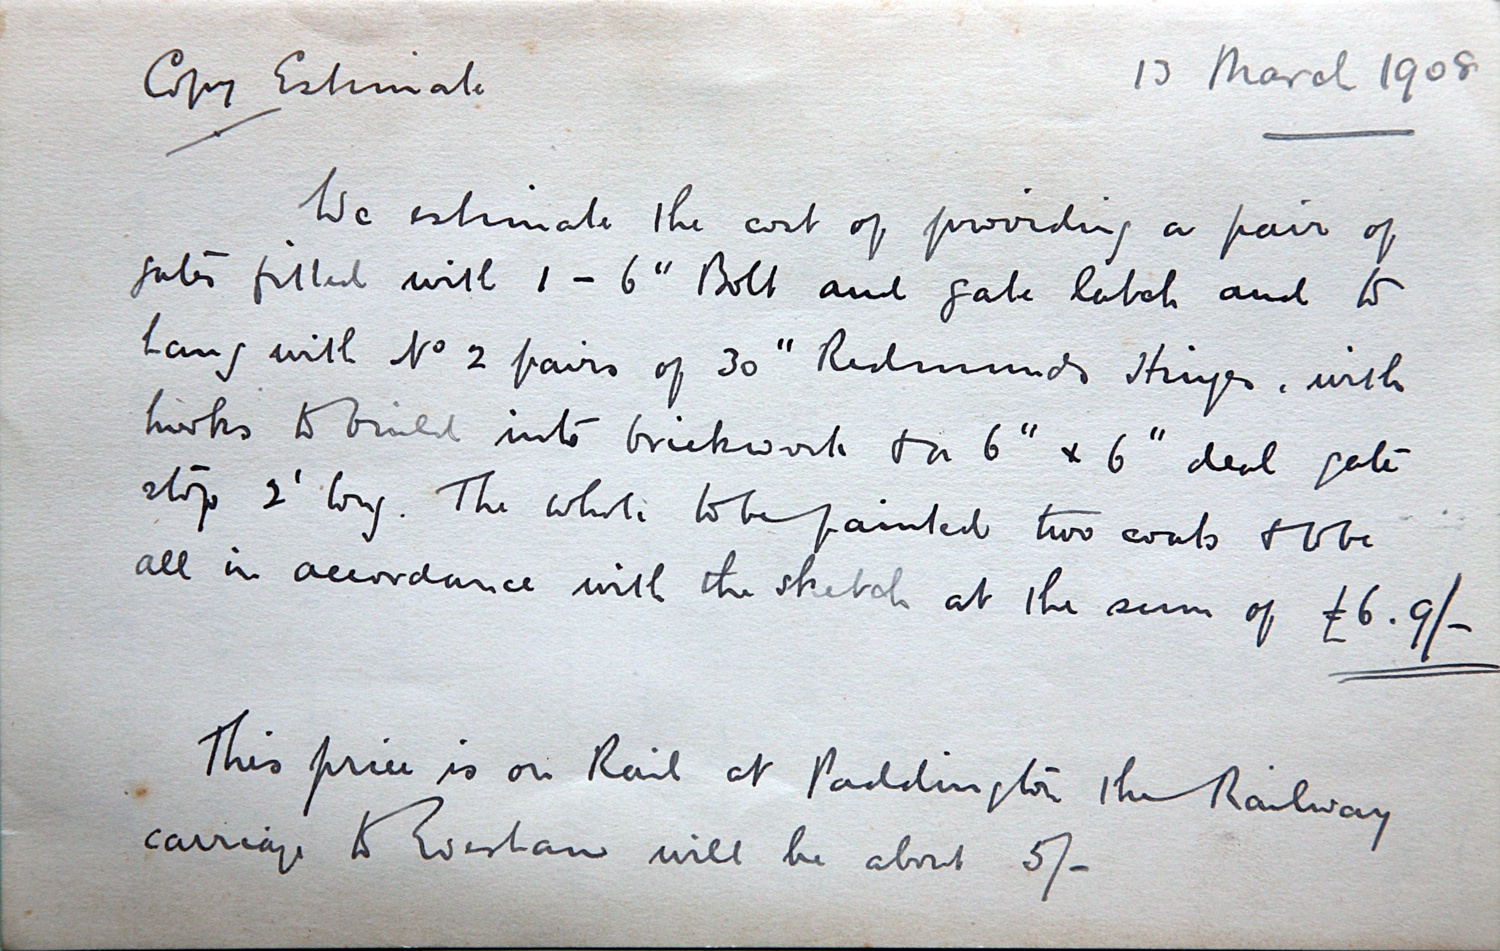 Copy Estimate
13 March 1908
We estimate the cost of providing a pair of
gates fitted with 1 - 6" Bolt and gate latch and to
hang with No 2 pairs of 30" Redmunds Hinges, with
hooks to build into brickwork & a 6" x 6" deal gate
stop 2' long. The whole to be painted two coats & to be
all in accordance with the sketch at the sum of £6.9/-
This price is on Rail at Paddington the Railway
carriage to Evesham will be about 5/-